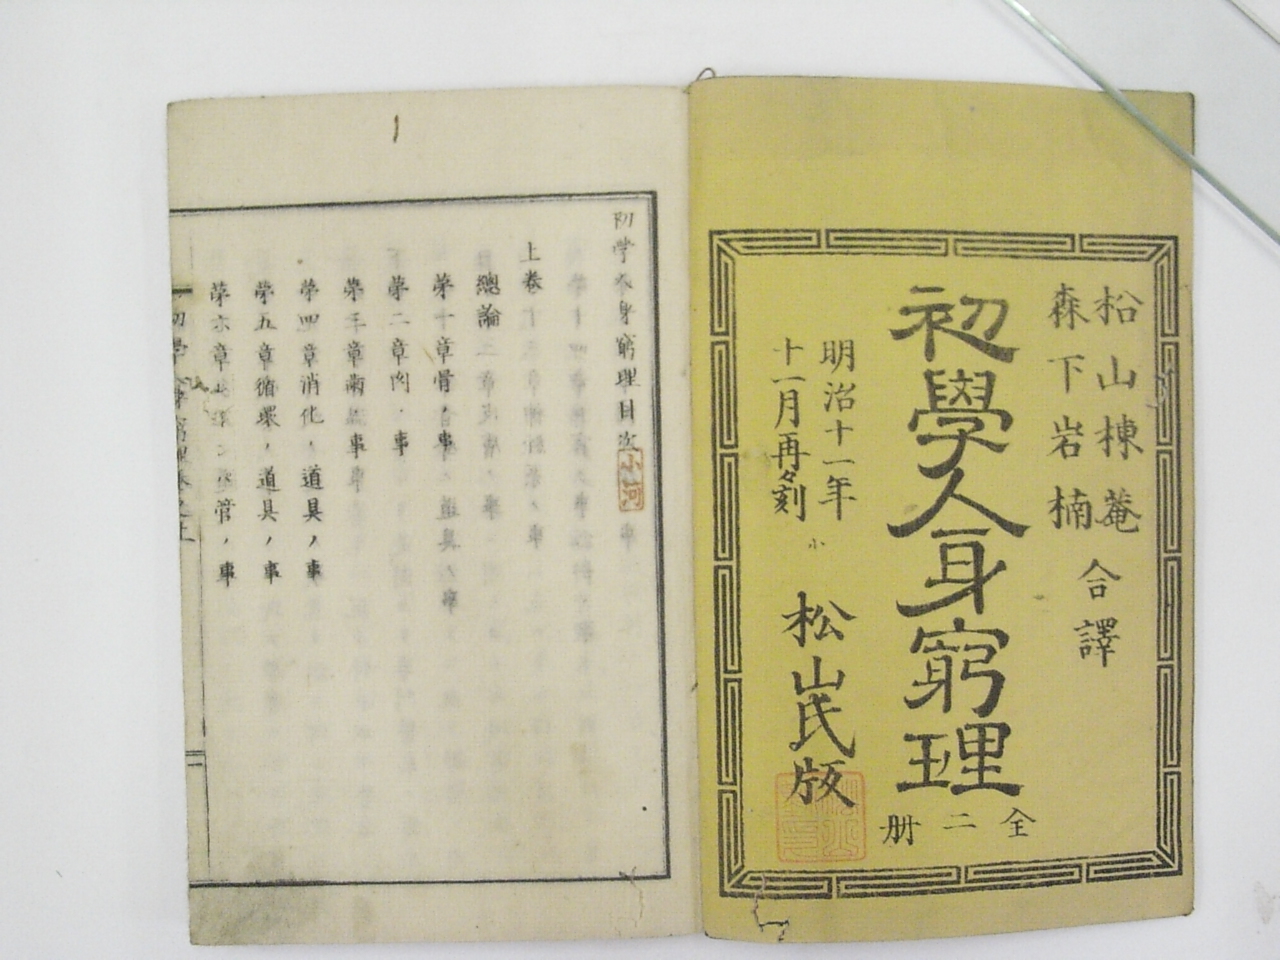 松山棟菴
森下岩楠
合譯
初學人身窮理
全二冊
明治十一年
十一月再刻
松山氏版
初学人身窮理目次
小河
上巻
總論
第一章骨ノ道具ノ事
第二章肉ノ事
第三章歯ノ事
第四章消化ノ道具ノ事
第五章循環ノ道具ノ事